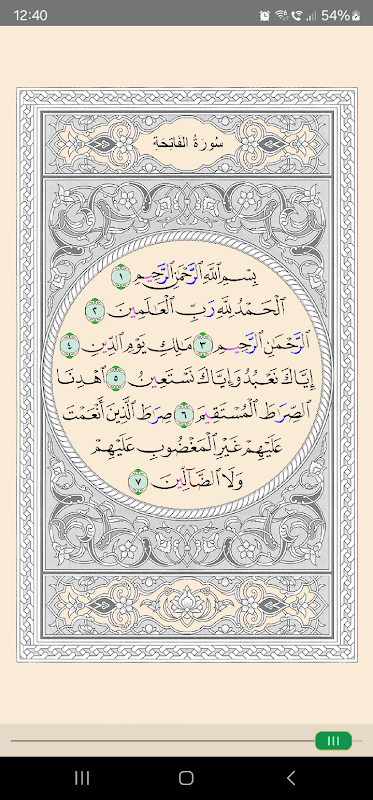 12:40
54%
سُورَةُ الْفَاتِحَةِ
بِسْمِ ٱللَّهِ ٱلرَّحْمَٰنِ ٱلرَّحِيمِ ١
ٱلْحَمْدُ لِلَّهِ رَبِّ ٱلْعَٰلَمِينَ ٢
ٱلرَّحْمَٰنِ ٱلرَّحِيمِ ٣ مَٰلِكِ يَوْمِ ٱلدِّينِ ٤
إِيَّاكَ نَعْبُدُ وَإِيَّاكَ نَسْتَعِينُ ٥ ٱهْدِنَا
ٱلصِّرَٰطَ ٱلْمُسْتَقِيمَ ٦ صِرَٰطَ ٱلَّذِينَ أَنْعَمْتَ
عَلَيْهِمْ غَيْرِ ٱلْمَغْضُوبِ عَلَيْهِمْ
وَلَا ٱلضَّآلِّينَ ٧